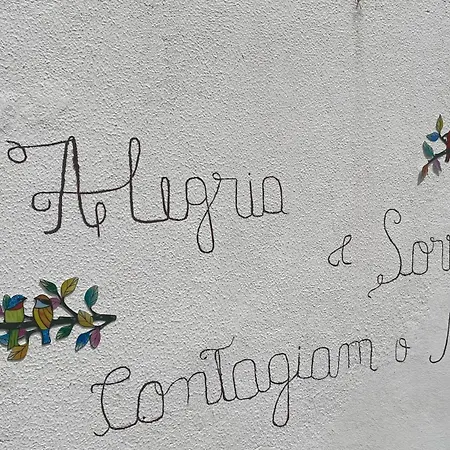 Alegria
e Sorr
Contagiam o